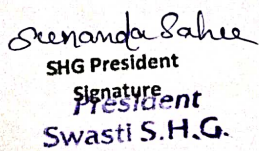 Sunanda Sahu
SHG President
Signature
President
Swasti S.H.G.